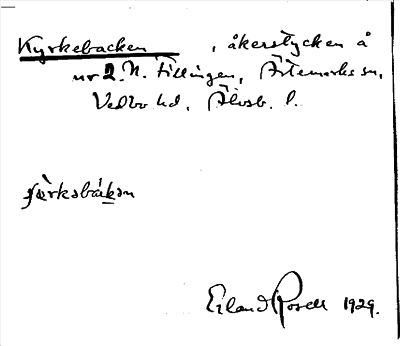 Kyrkebacken, åkerstycken å
nr 2. N. Tillingen, Ärtemarks sn,
Vedbo hd, Älvsb. l.
çèrkəbákən
Erland Rosell 1929.